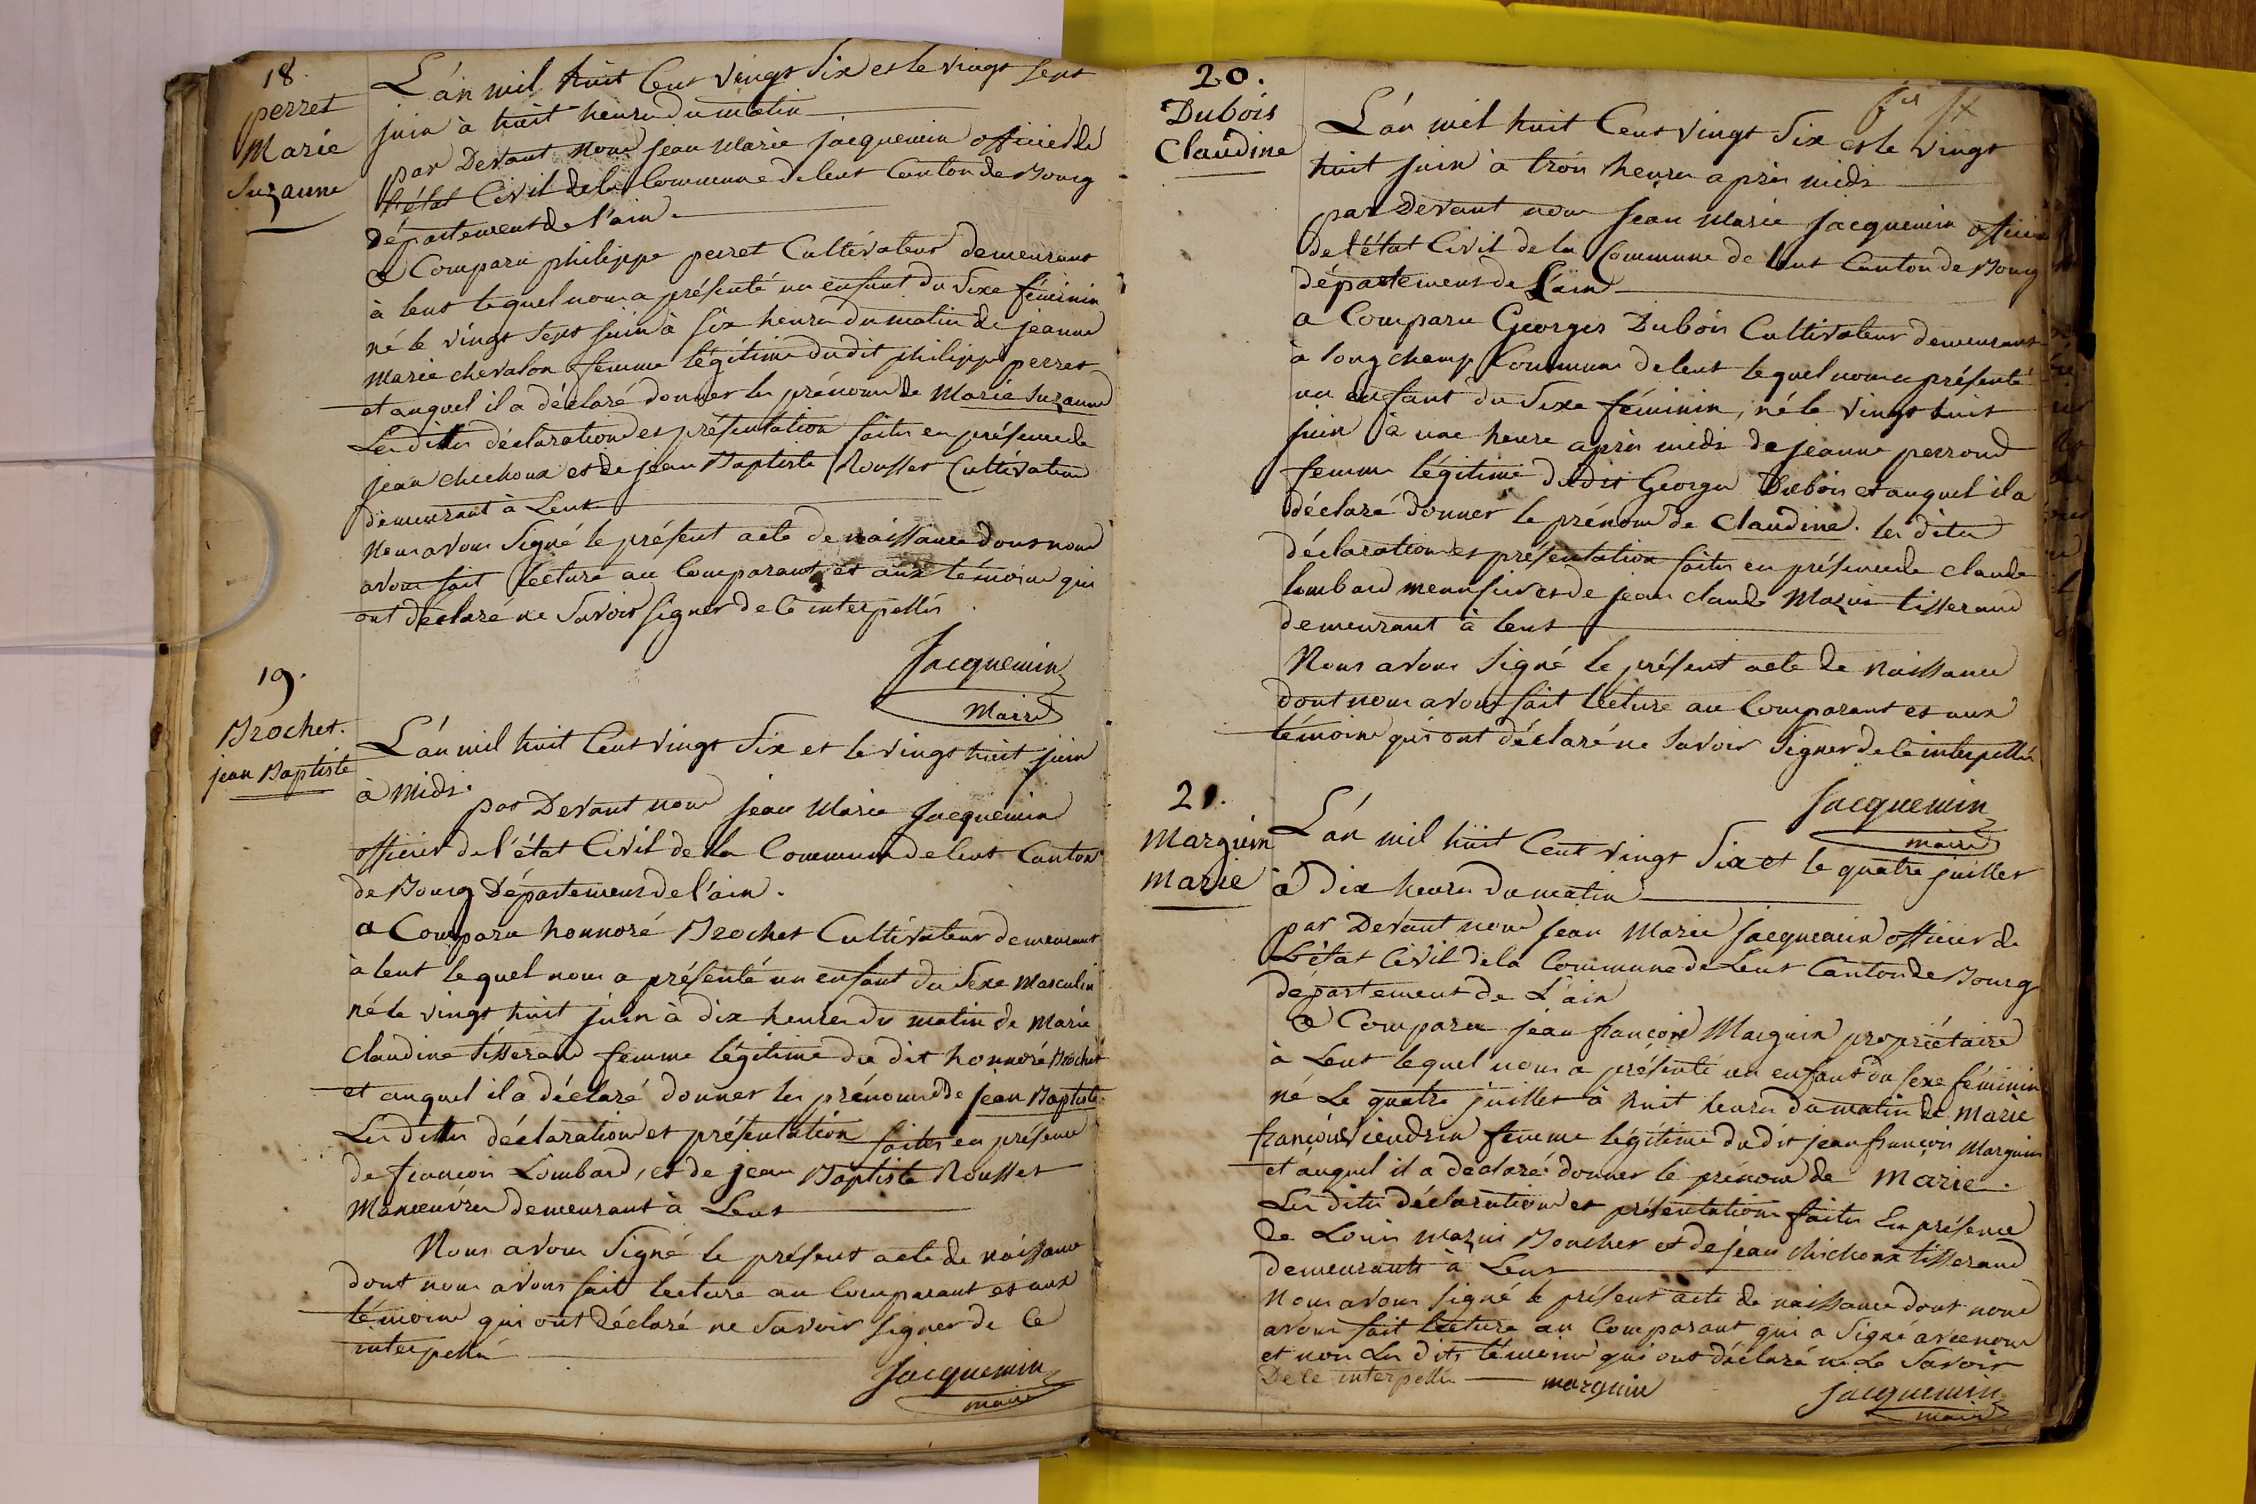 18.
perret
Marie
Suzanne
L'án mil huit Cent vingt Six et le vingt sept
juin à huit heures du matin
par Devant nous jean Marie jacquemin officier de
l'état Civil de la Commune de lent Canton de Bourg
département de l'ain.
a Comparu philippe perret Cultivateur demeurant
à lent lequel nous a présenté un enfant du Sexe féminin
né le vingt Sept juin à six heures du matin de jeanne
Marie chevalon femme légitime du dit philippe perret
et auquel il a déclaré donner les prénoms de Marie Suzanne
Les dittes déclaration et présentation faites en présence de
jean chichoux et de jean Baptiste Rousset Cultivateurs
demeurant à Lent
Nous avons Signé le présent acte de naissance dont nous
avons fait lecture au Comparant et aux témoins qui
ont déclaré ne Savoir signer de ce interpellés
Jacquemin
Maire
19.
Brochet.
jean Baptiste
L'án mil huit Cent vingt Six et le vingt huit juin
à Midi.
par Devant nous jean Marie Jacquemin
officier de l'état Civil de la Commune de lent Canton
de Bourg Département de l'ain.
a Comparu honnoré Brochet Cultivateur demeurant
à lent lequel nous a présenté un enfant du Sexe Masculin
né le vingt huit juin à dix heures du matin de Marie
Claudine tisserand femme légitime du dit honnoré Brochet
et auquel il a déclaré donner les prénoms de jean Baptiste.
Les dittes déclaration et présentation faites en présence
de françois Lombard, et de jean Baptiste Rousset
Manœuvres demeurant à Lent
Nous avons Signé le présent acte de naissance
dont nous avons fait lecture au Comparant et aux
témoins qui ont déclaré ne Savoir signer de ce
interpellé
Jacquemin
maire
20.
Dubois
Claudine
L'án mil huit Cent vingt Six et le vingt
huit juin à trois heures après midi
par Devant nous Jean Marie Jacquemin officier
de l'état Civil de la Commune de lent Canton de Bourg
département de L'ain
a Comparu Georges Dubois Cultivateur demeurant
à longchamp Commune de lent lequel nous a présenté
un enfant du Sexe féminin, né le vingt huit
juin à une heure après midi de jeanne perroud
femme légitime du dit Georges Dubois et auquel il a
déclaré donner le prénom de Claudine. les dites
déclaration et présentation faites en présence de Claude
lombard menusier et de jean claude Mazuis tisserand
demeurant à lent
Nous avons Signé le présent acte de Naissance
dont nous avons fait lecture au Comparant et aux
témoins qui ont déclaré ne Savoir Signer de ce interpellés
Jacquemin
maire
21.
Marguin
Marie
L'án mil huit Cent vingt Six et le quatre juillet
à Dix heures du matin
par Devant nous jean Marie jacquemin officier de
L'état Civil de la Commune de Lent Canton de Bourg
département de L'ain
a Comparu jean françois Marguin propriétaire
à Lent lequel nous a présenté un enfant du sexe féminin
né Le quatre juillet à huit heures du matin de Marie
françoise femme légitime du dit jean françois Marguin
et auquel il a déclaré donner le prénom de Marie.
Les dites déclaration et présentation faites En présence
de Louis Mazuis Boucher et de jean chichoux tisserand
demeurants à Lent
Nous avons signé le présent acte de naissance dont nous
avons fait lecture au Comparant qui a Signé avec nous
et non Les dits témoins qui ont déclaré ne Le Savoir
De ce interpellés marguin
jacquemin
maire